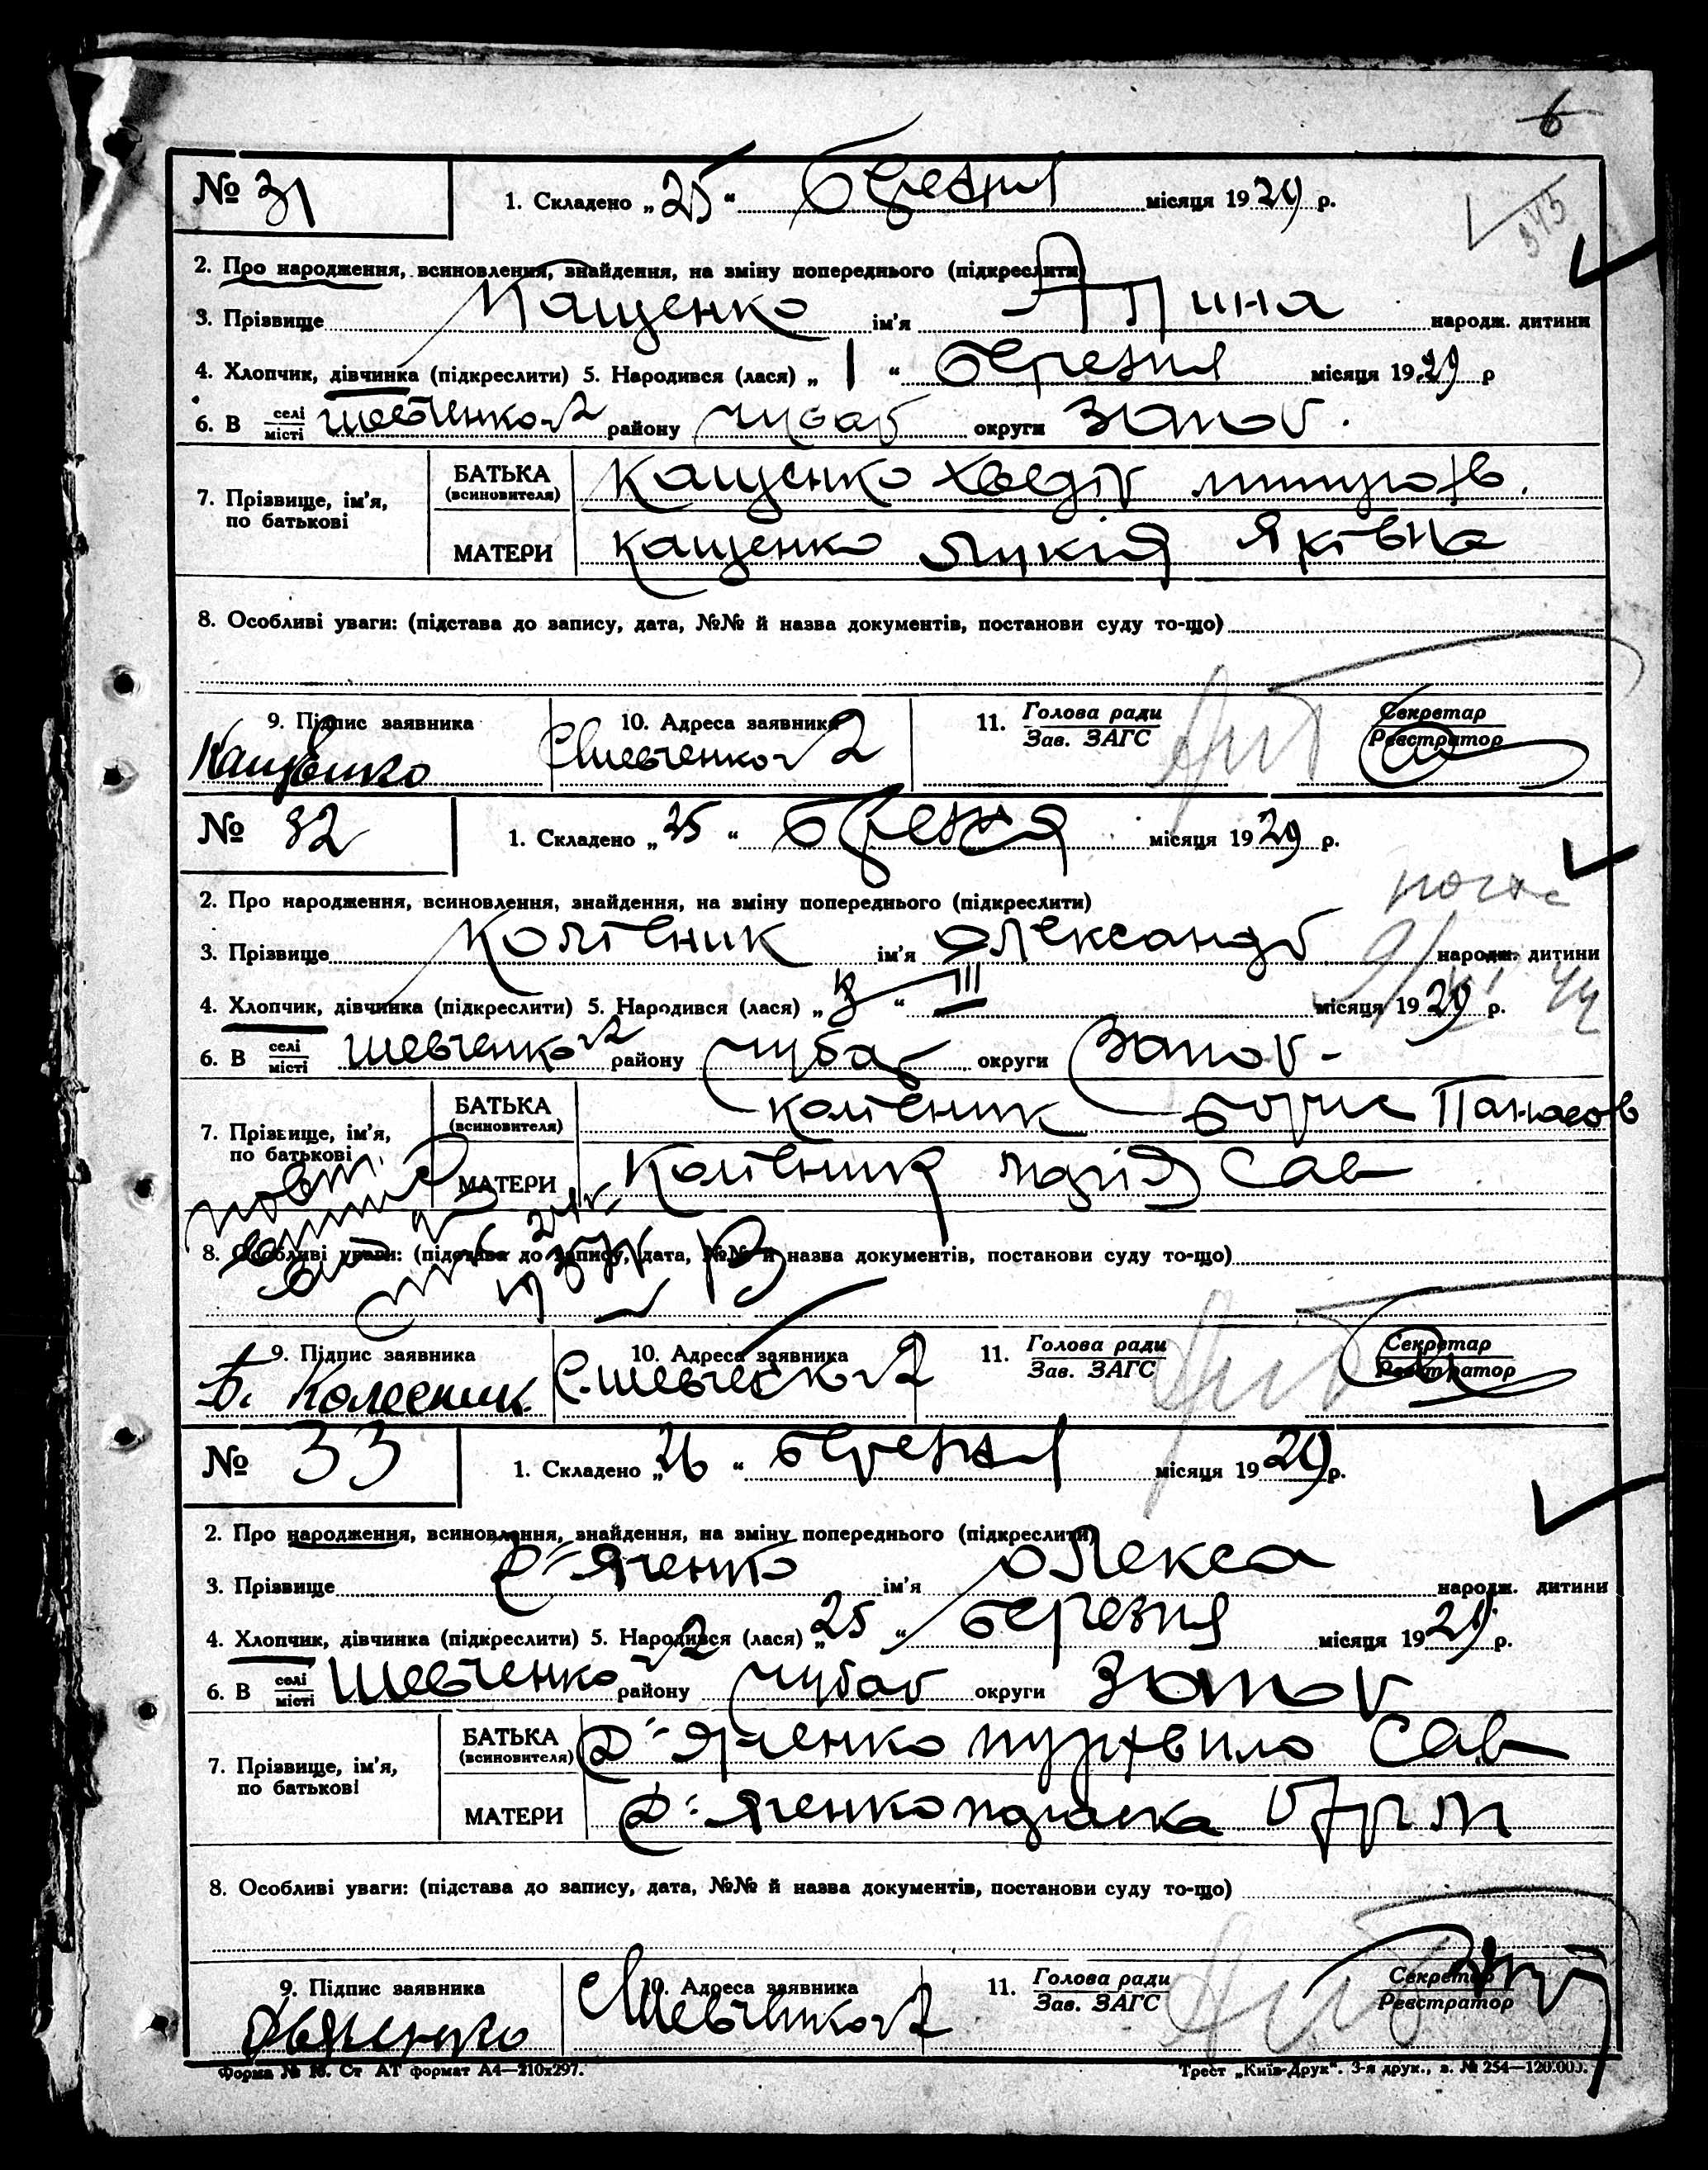 6
№ 31
1. Складено „25“ березня місяця 1929 р.
2. Про народження, всиновлення, знайдення, на зміну попереднього (підкреслити)
3. Прізвище Кащенко ім'я народж. дитини
4. Хлопчик, дівчинка (підкреслити) 5. Народився (лася) „1“ березня місяця 1929 р
6. В селі місті Шевченко 2 району Чубар округи Запор.
7. Прізвище, ім'я, по батькові
БАТЬКА (всиновителя) Кащенко Хведір
МАТЕРИ Кащенко Лукія Яківна
8. Особливі уваги: (підстава до запису, дата, №№ й назва документів, постанови суду то-що)
9. Підпис заявника 10. Адреса заявника 11. Голова ради Зав. ЗАГС Секретар Реєстратор
Кащенко с. Шевченко 2
№ 32
1. Складено „25“ березня місяця 1929 р.
2. Про народження, всиновлення, знайдення, на зміну попереднього (підкреслити)
3. Прізвище ім'я Олександр народж. дитини
4. Хлопчик, дівчинка (підкреслити) 5. Народився (лася) „ “ III місяця 1929 р.
6. В селі місті Шевченко 2 району Чубар округи Запор
7. Прізвище, ім'я, по батькові
БАТЬКА (всиновителя) Борис Панасов
МАТЕРИ Сав
8. Особливі уваги: (підстава до запису, дата, №№ й назва документів, постанови суду то-що)
9. Підпис заявника 10. Адреса заявника 11. Голова ради Зав. ЗАГС Секретар Реєстратор
Б. Колесник с. 2
№ 33
1. Складено „26“ березня місяця 1929 р.
2. Про народження, всиновлення, знайдення, на зміну попереднього (підкреслити)
3. Прізвище Д'яченко ім'я Олекса народж. дитини
4. Хлопчик, дівчинка (підкреслити) 5. Народився (лася) „25“ березня місяця 1929 р.
6. В селі місті Шевченко 2 району Чубар округи Запор
7. Прізвище, ім'я, по батькові
БАТЬКА (всиновителя) Д'яченко Сав
МАТЕРИ Д'яченко
8. Особливі уваги: (підстава до запису, дата, №№ й назва документів, постанови суду то-що)
9. Підпис заявника 10. Адреса заявника 11. Голова ради Зав. ЗАГС Секретар Реєстратор
с. Шевченко 2
Форма № 16. Ст АТ формат А4—210х297.
Трест „Київ-Друк". 3-я друк., з. № 254—120.000.